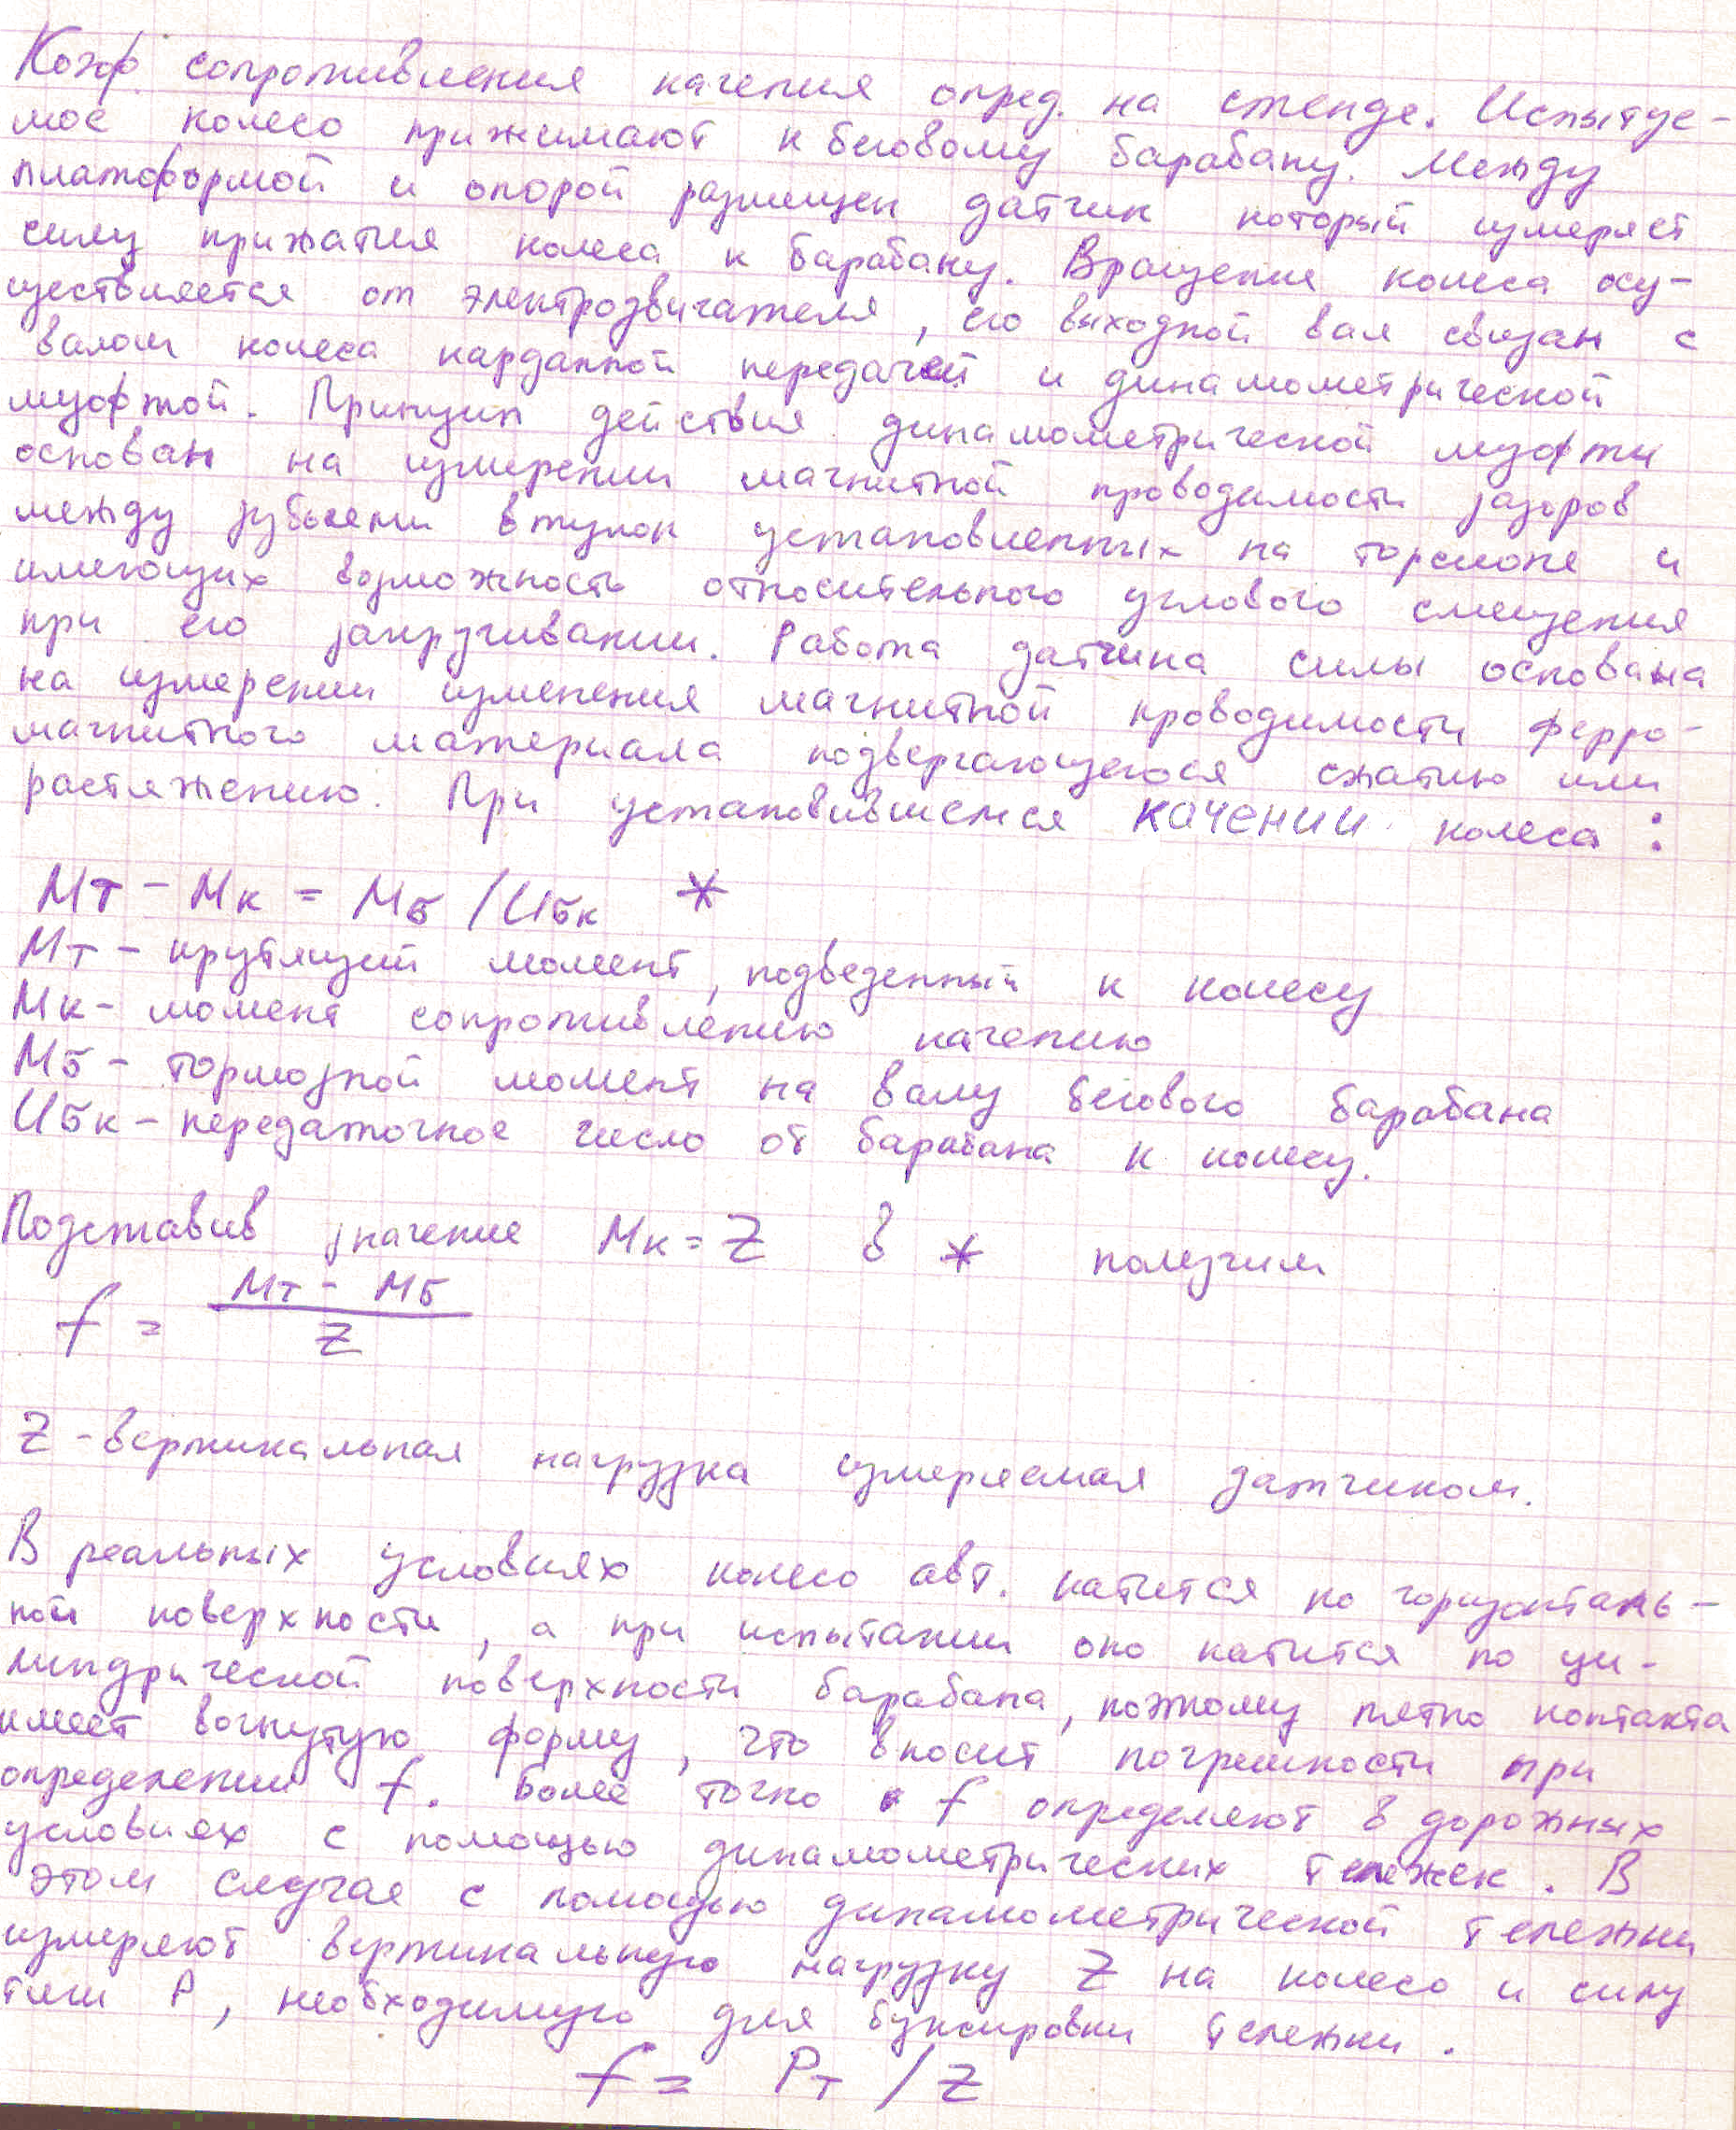 Коэф. сопротивления качения опред. на стенде. Испытуе-
мое колесо прижимают к беговому барабану. Между
платформой и опорой размещен датчик который измеряет
силу прижатия колеса к барабану. Вращение колеса осу-
ществляется от электродвигателя, его выходной вал связан с
валом колеса карданной передачей и динамометрической
муфтой. Принцип действия динамометрической муфты
основан на измерении магнитной проводимости зазоров
между зубьями втулок установленных на торсионе и
имеющих возможность относительного углового смещения
при его закручивании. Работа датчика силы основана
на измерении изменения магнитной проводимости ферро-
магнитного материала подвергающегося сжатию или
растяжению. При установившемся качении колеса:
Мт - Мк = Мб /Uбк *
Мт - крутящий момент, подведенный к колесу
Мк - момент сопротивлению качению
Мб - тормозной момент на валу бегового барабана
Uбк - передаточное число от барабана к колесу.
Подставив значение Мк = Z в * получим
f = Мт - Мб / Z
Z - вертикальная нагрузка измеряемая датчиком.
В реальных условиях колесо авт. катится по горизонталь-
ной поверхности, а при испытании оно катится по ци-
линдрической поверхности барабана, поэтому пятно контакта
имеет вогнутую форму, что вносит погрешности при
определении f. Более точно f определяют в дорожных
условиях с помощью динамометрических тележек. В
этом случае с помощью динамометрической тележки
измеряют вертикальную нагрузку Z на колесо и силу
тяги Р, необходимую для буксировки тележки.
f = Рт / Z